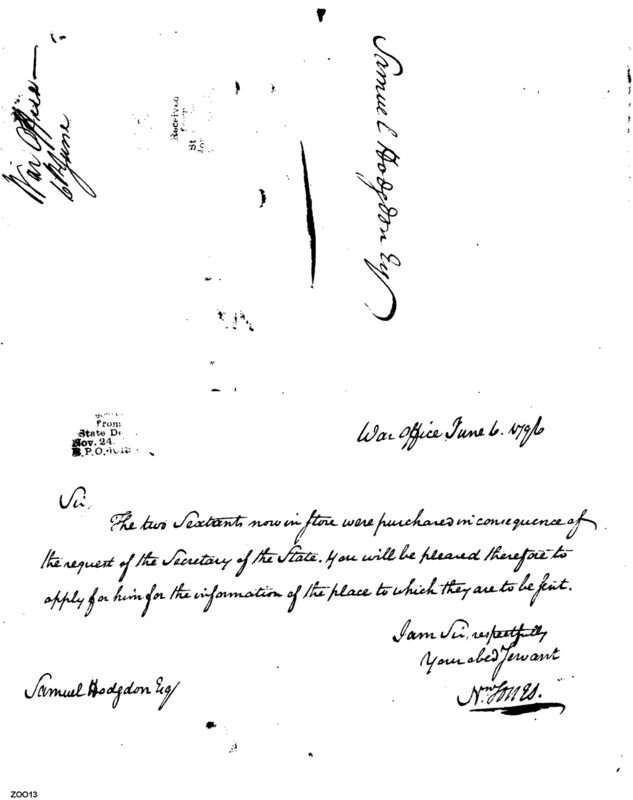 War Office
6 June
Received
St
Samuel Hodgdon Esq
from
State De
Nov. 24.
R.P.O.
War Office June 6. 1796
Sir,
The two Sextants now in store were purchased in consequence of
the request of the Secretary of the State. You will be pleased therefore to
apply for him for the information of the place to which they are to be sent.
I am Sir, respectfully
Your obed Servant
Jones.
Samuel Hodgdon Esq
ZOO13